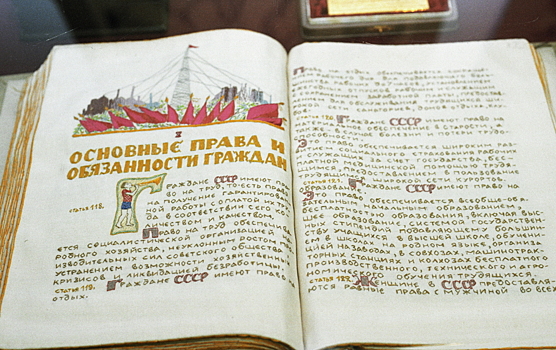 X
ОСНОВНЫЕ ПРАВА И
ОБЯЗАННОСТИ ГРАЖДАН
СТАТЬЯ 118. ГРАЖДАНЕ СССР ИМЕЮТ ПРА
ВО НА ТРУД, ТО-ЕСТЬ ПРАВО
НА ПОЛУЧЕНИЕ ГАРАНТИРОВАН
РАБОТЫ С ОПЛАТОЙ ИХ ТРУ
ДА В СООТВЕТСТВИИ С ЕГО КО
ЛИЧЕСТВОМ И КАЧЕСТВОМ
ПРАВО НА ТРУД ОБЕСПЕЧИВА
ЕТСЯ СОЦИАЛИСТИЧЕСКОЙ ОРГАНИЗАЦИЕЙ НА
РОДНОГО ХОЗЯЙСТВА, НЕУКЛОННЫМ РОСТОМ
ИЗВОДИТЕЛЬНЫХ СИЛ СОВЕТСКОГО ОБЩЕСТВА,
УСТРАНЕНИЕМ ВОЗМОЖНОСТИ ХОЗЯЙСТВЕННЫХ
КРИЗИСОВ И ЛИКВИДАЦИЕЙ БЕЗРАБОТИЦЫ
СТАТЬЯ 119. ГРАЖДАНЕ СССР ИМЕЮТ ПРАВО НА
ОТДЫХ.
ПРАВО НА ОТДЫХ ОБЕСПЕЧИВАЕТСЯ
РАБОЧЕГО ДНЯ ДЛЯ ПОДАВЛЯЮЩЕГО
РАБОЧИХ
ОТПУСКОВ РАБОЧИМ И СЛУЖАЩИМ
ЗАРАБОТНОЙ ПЛАТЫ,
ДЛЯ ОБСЛУЖИВАНИЯ ТРУДЯЩИХСЯ
СЕТИ САНАТОРИЕВ, ДОМОВ ОТДЫХА,
СТАТЬЯ 120. ГРАЖДАНЕ СССР ИМЕЮТ ПРАВО НА
МАТЕРИАЛЬНОЕ ОБЕСПЕЧЕНИЕ В СТАРОСТИ, А
ТАКЖЕ В СЛУЧАЕ БОЛЕЗНИ И ПОТЕРИ ТРУДО
СПОСОБНОСТИ
ЭТО ПРАВО ОБЕСПЕЧИВАЕТСЯ ШИРОКИМ РАЗ
СОЦИАЛЬНОГО СТРАХОВАНИЯ РАБОЧИХ
СЛУЖАЩИХ ЗА СЧЕТ ГОСУДАРСТВА, БЕС
ПЛАТНОЙ МЕДИЦИНСКОЙ ПОМОЩЬЮ ТРУДЯ
ПРЕДОСТАВЛЕНИЕМ В ПОЛЬЗОВАНИЕ
ТРУДЯЩИМСЯ СЕТИ КУРОРТОВ.
СТАТЬЯ 121. ГРАЖДАНЕ СССР ИМЕЮТ ПРАВО НА
ОБРАЗОВАНИЕ.
ЭТО ПРАВО ОБЕСПЕЧИВАЕТСЯ ВСЕОБЩЕ-ОБЯ
ЗАТЕЛЬНЫМ НАЧАЛЬНЫМ ОБРАЗОВАНИЕМ,
ОБРАЗОВАНИЯ, ВКЛЮЧАЯ ВЫС
ШЕЕ ОБРАЗОВАНИЕ, СИСТЕМОЙ ГОСУДАРСТВЕН
НЫХ СТИПЕНДИЙ ПОДАВЛЯЮЩЕМУ БОЛЬШИН
СТВУ УЧАЩИХСЯ В ВЫСШЕЙ ШКОЛЕ, ОБУЧЕНИ
ЕМ В ШКОЛАХ НА РОДНОМ ЯЗЫКЕ, ОРГАНИЗА
ЦИЕЙ НА ЗАВОДАХ, В СОВХОЗАХ, МАШИНОТРАК
ТОРНЫХ СТАНЦИЯХ И КОЛХОЗАХ БЕСПЛАТНОГО
ПРОИЗВОДСТВЕННОГО, ТЕХНИЧЕСКОГО И АГРО
НОМИЧЕСКОГО ОБУЧЕНИЯ ТРУДЯЩИХСЯ.
СТАТЬЯ 122. ЖЕНЩИНЕ В СССР ПРЕДОСТАВЛЯ
ЮТСЯ РАВНЫЕ ПРАВА С МУЖЧИНОЙ ВО ВСЕХ